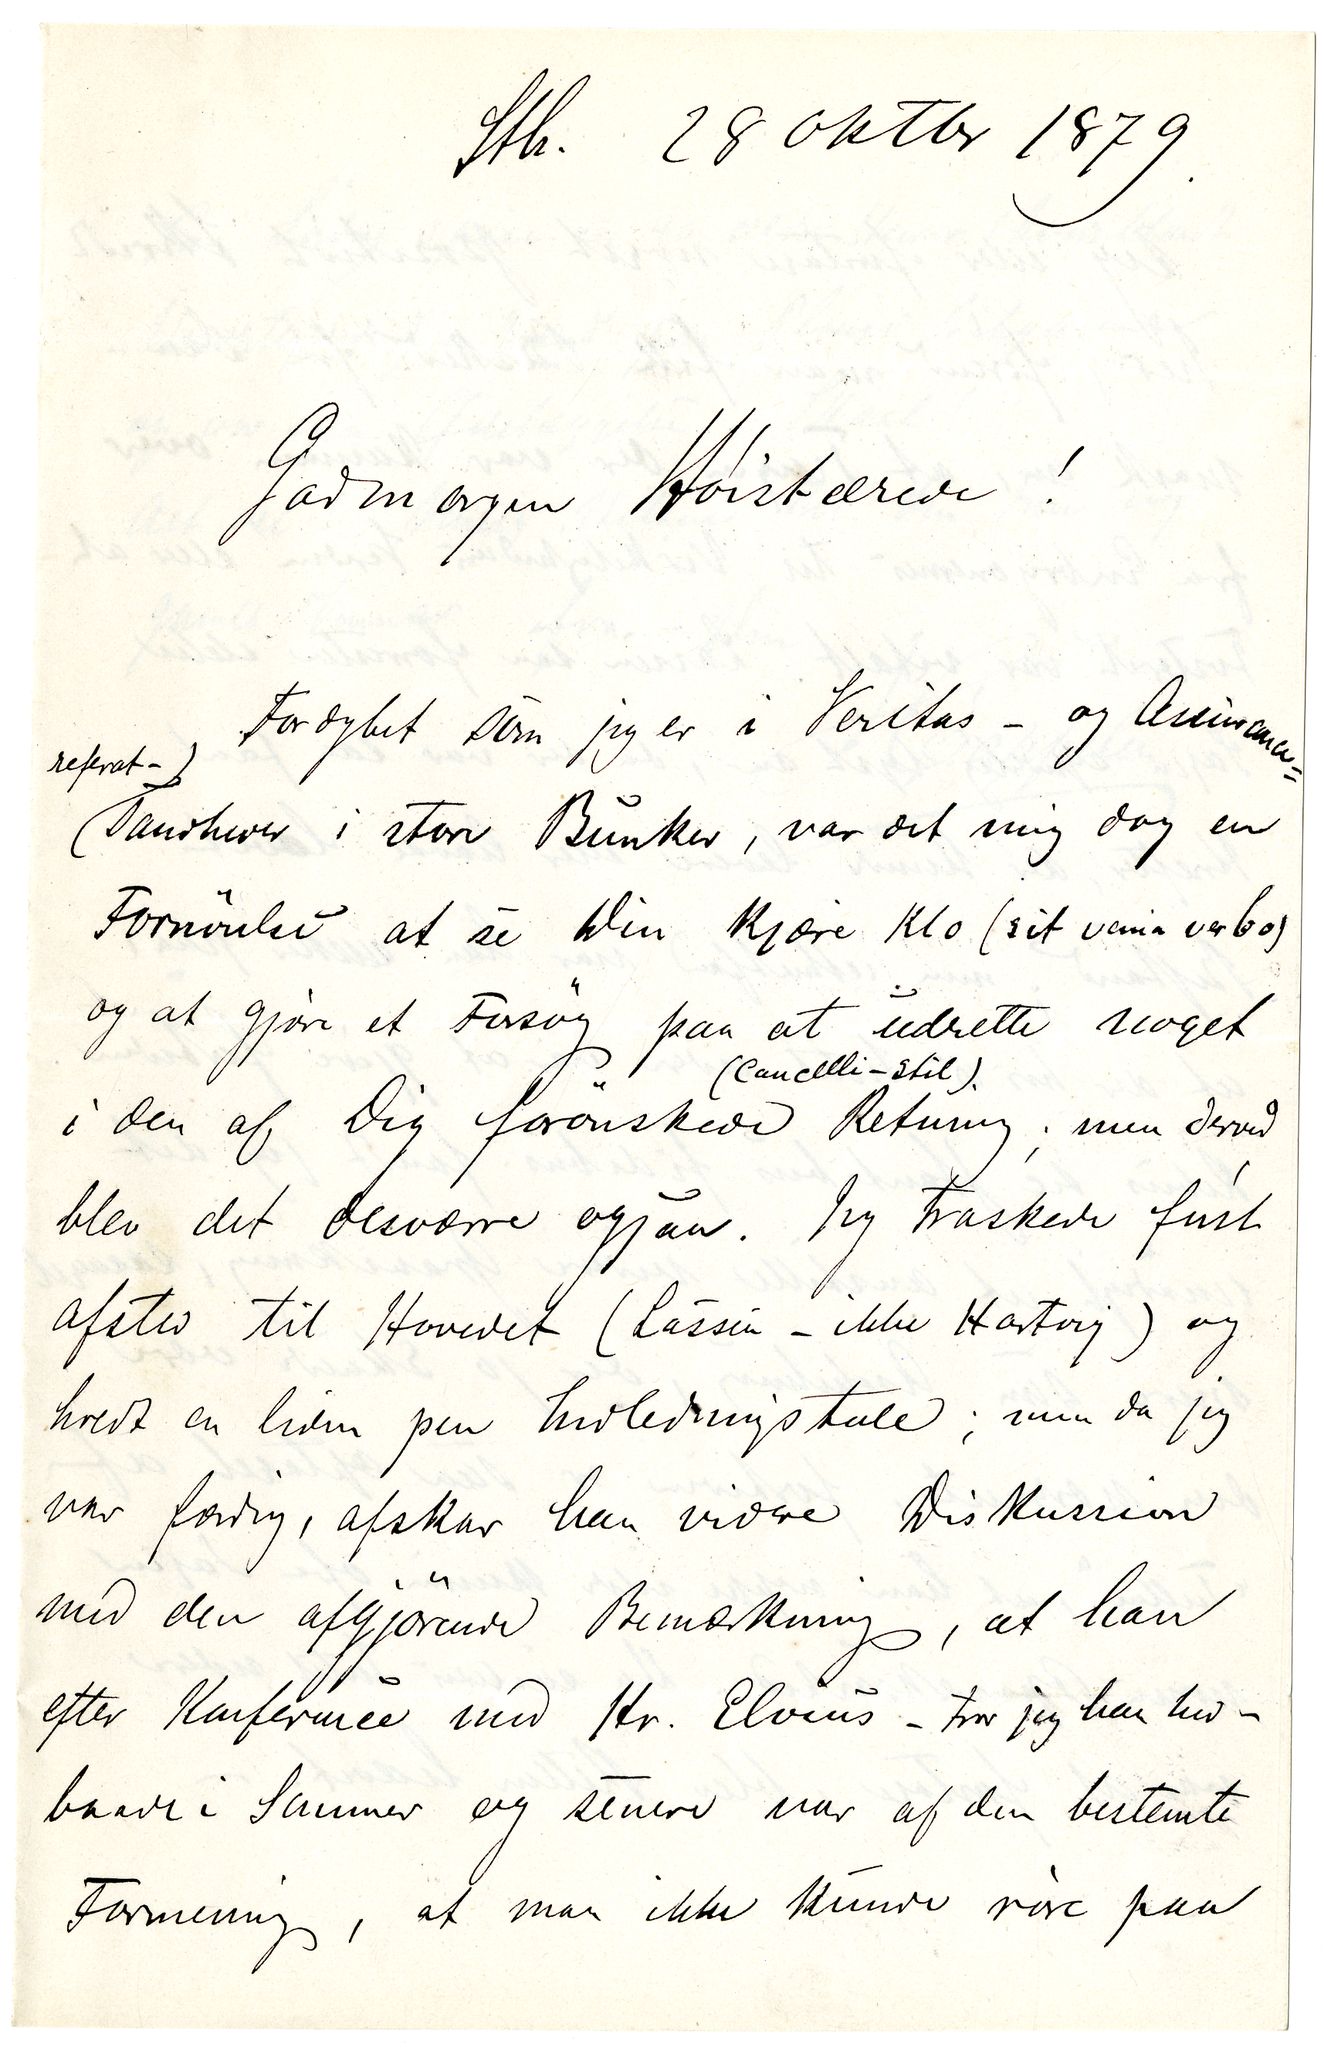 Sth. 28 Oktbr 1879.
Godmorgen Høistærede!
Fordybet som jeg er i Veritas - og Assurance=
referat-)
(Sandheder i store Bunker, var det mig dog en
Fornöielse at se Din kjære Klo (sit venia verbo)
og at gjøre et Forsög paa at udrette noget
(Cancelli-stil).
i den af Dig forönskede Retning; men derved
blev det desværre ogsaa. Jeg traskede först
afsted til Hovedet (Lassen - ikke Hartvig) og
holdt en liden pen Indledningstale; men da jeg
var færdig, afskar han videre Diskussion
med den afgjörende Bemærkning, at han
efter Konference med Hr. Elvius - tror jeg han hed -
baade i Sommer og senere var af den bestemte
Formening, at man ikke kunde röre paa